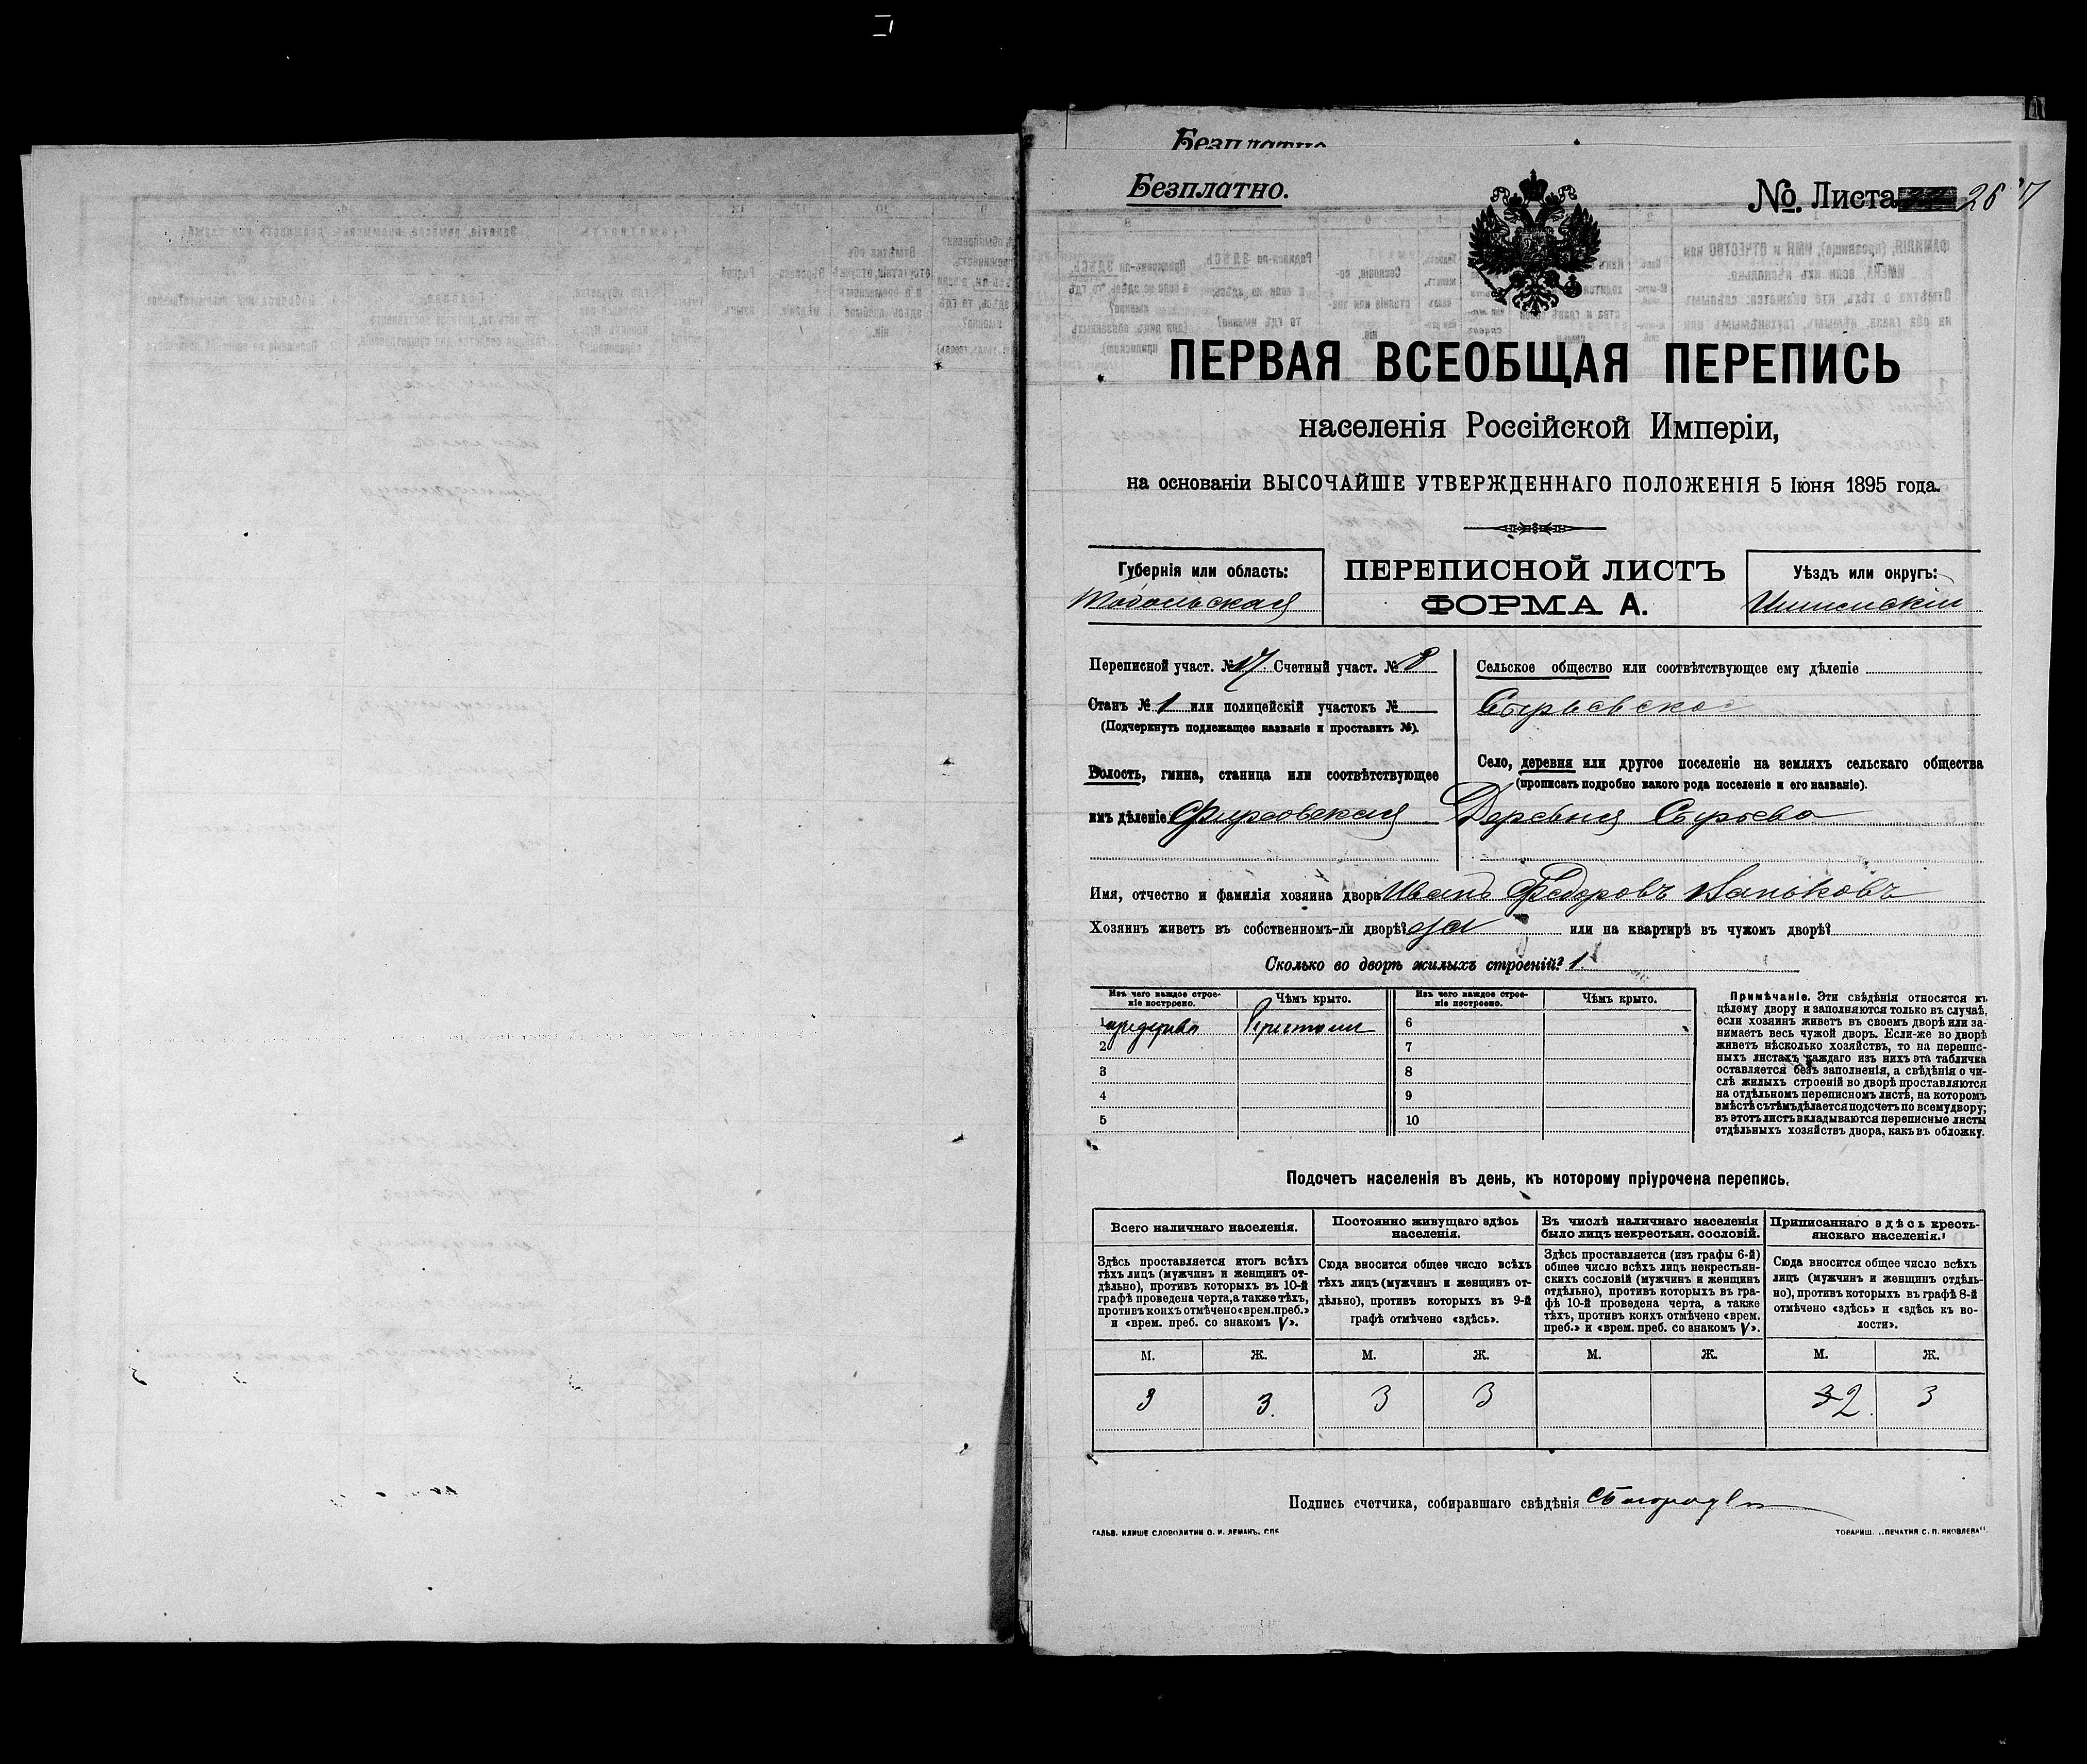 Безплатно
Безплатно.
№. Листа 26
ПЕРВАЯ ВСЕОБЩАЯ ПЕРЕПИСЬ
населенія Россійской Имперіи,
на основаніи ВЫСОЧАЙШЕ УТВЕРЖДЕННАГО ПОЛОЖЕНІЯ 5 Іюня 1895 года.
Губернія или область:
Тобольская
ПЕРЕПИСНОЙ ЛИСТЪ
ФОРМА А.
Уѣздъ или округъ:
Ишимскій
Переписной участ. № 17 Счетный участ. № 8
Станъ № 1 или полицейскій участокъ № —
(Подчеркнуть подлежащее названіе и проставить №).
Волость, гмина, станица или соотвѣтствующее
имъ дѣленіе Фирсовская
Сельское общество или соотвѣтствующее ему дѣленіе
Сырьевское
Село, деревня или другое поселеніе на земляхъ сельскаго общества
(прописать подробно какого рода поселеніе и его названіе).
Деревня Сырьева
Имя, отчество и фамилія хозяина двора Иванъ Федоровъ Паньковъ
Хозяинъ живетъ въ собственномъ-ли дворѣ? да или на квартирѣ въ чужомъ дворѣ?
Сколько во дворѣ жилыхъ строеній? 1
Изъ чего каждое строеніе построено. Чѣмъ крыто. Изъ чего каждое строеніе построено. Чѣмъ крыто.
1 6
2 7
3 8
4 9
5 10
Примѣчаніе. Эти свѣдѣнія относятся къ
цѣлому двору и заполняются только въ случаѣ,
если хозяинъ живетъ въ своемъ дворѣ или за-
нимаетъ весь чужой дворъ. Если-же во дворѣ
живетъ нѣсколько хозяйствъ, то на перепис-
ныхъ листахъ каждаго изъ нихъ эта табличка
оставляется безъ заполненія, а свѣдѣнія о чи-
слѣ жилыхъ строеній во дворѣ проставляются
на отдѣльномъ переписномъ листѣ, на которомъ
вмѣстѣ съ тѣмъ дѣлается подсчетъ по всему двору;
въ этотъ листъ вкладываются переписные листы
отдѣльныхъ хозяйствъ двора, какъ въ обложку.
Подсчетъ населенія въ день, къ которому пріурочена перепись.
Всего наличнаго населенія.
Здѣсь проставляется итогъ всѣхъ
тѣхъ лицъ (мужчинъ и женщинъ от-
дѣльно), противъ которыхъ въ 10-й
графѣ проведена черта, а также тѣхъ,
противъ коихъ отмѣчено «врем. преб.»
и «врем. преб. со знакомъ V».
Постоянно живущаго здѣсь
населенія.
Сюда вносится общее число всѣхъ
тѣхъ лицъ (мужчинъ и женщинъ от-
дѣльно), противъ которыхъ въ 9-й
графѣ отмѣчено «здѣсь».
Въ числѣ наличнаго населенія
было лицъ некрестьян. сословій.
Здѣсь проставляется (изъ графы 6-й)
общее число всѣхъ лицъ некрестьян-
скихъ сословій (мужчинъ и женщинъ
отдѣльно), противъ которыхъ въ гра-
фѣ 10-й проведена черта, а также
тѣхъ, противъ коихъ отмѣчено «врем.
преб.» и «врем. преб. со знакомъ V».
Приписаннаго здѣсь кресть-
янскаго населенія.
Сюда вносится общее число всѣхъ
лицъ (мужчинъ и женщинъ отдѣль-
но), противъ которыхъ въ графѣ 8-й
отмѣчено «здѣсь» и «здѣсь къ во-
лости».
М. Ж. М. Ж. М. Ж. М. Ж.
3 3. 3 3 3 2 3
Подпись счетчика, собиравшаго свѣдѣнія
ГАЛЬВ. КЛИШЕ СЛОВОЛИТНИ О. И. ЛЕМАНЪ, СПБ
ТОВАРИЩ. „ПЕЧАТНЯ С. П. ЯКОВЛЕВА"